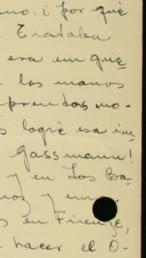 no. ¿Por qué
Trataba
era en que
las manos
prendas mo-
s logré esa im-
Gassmann!
y en Los Ba-
nos y un
s en Firenze,
hacer el O-